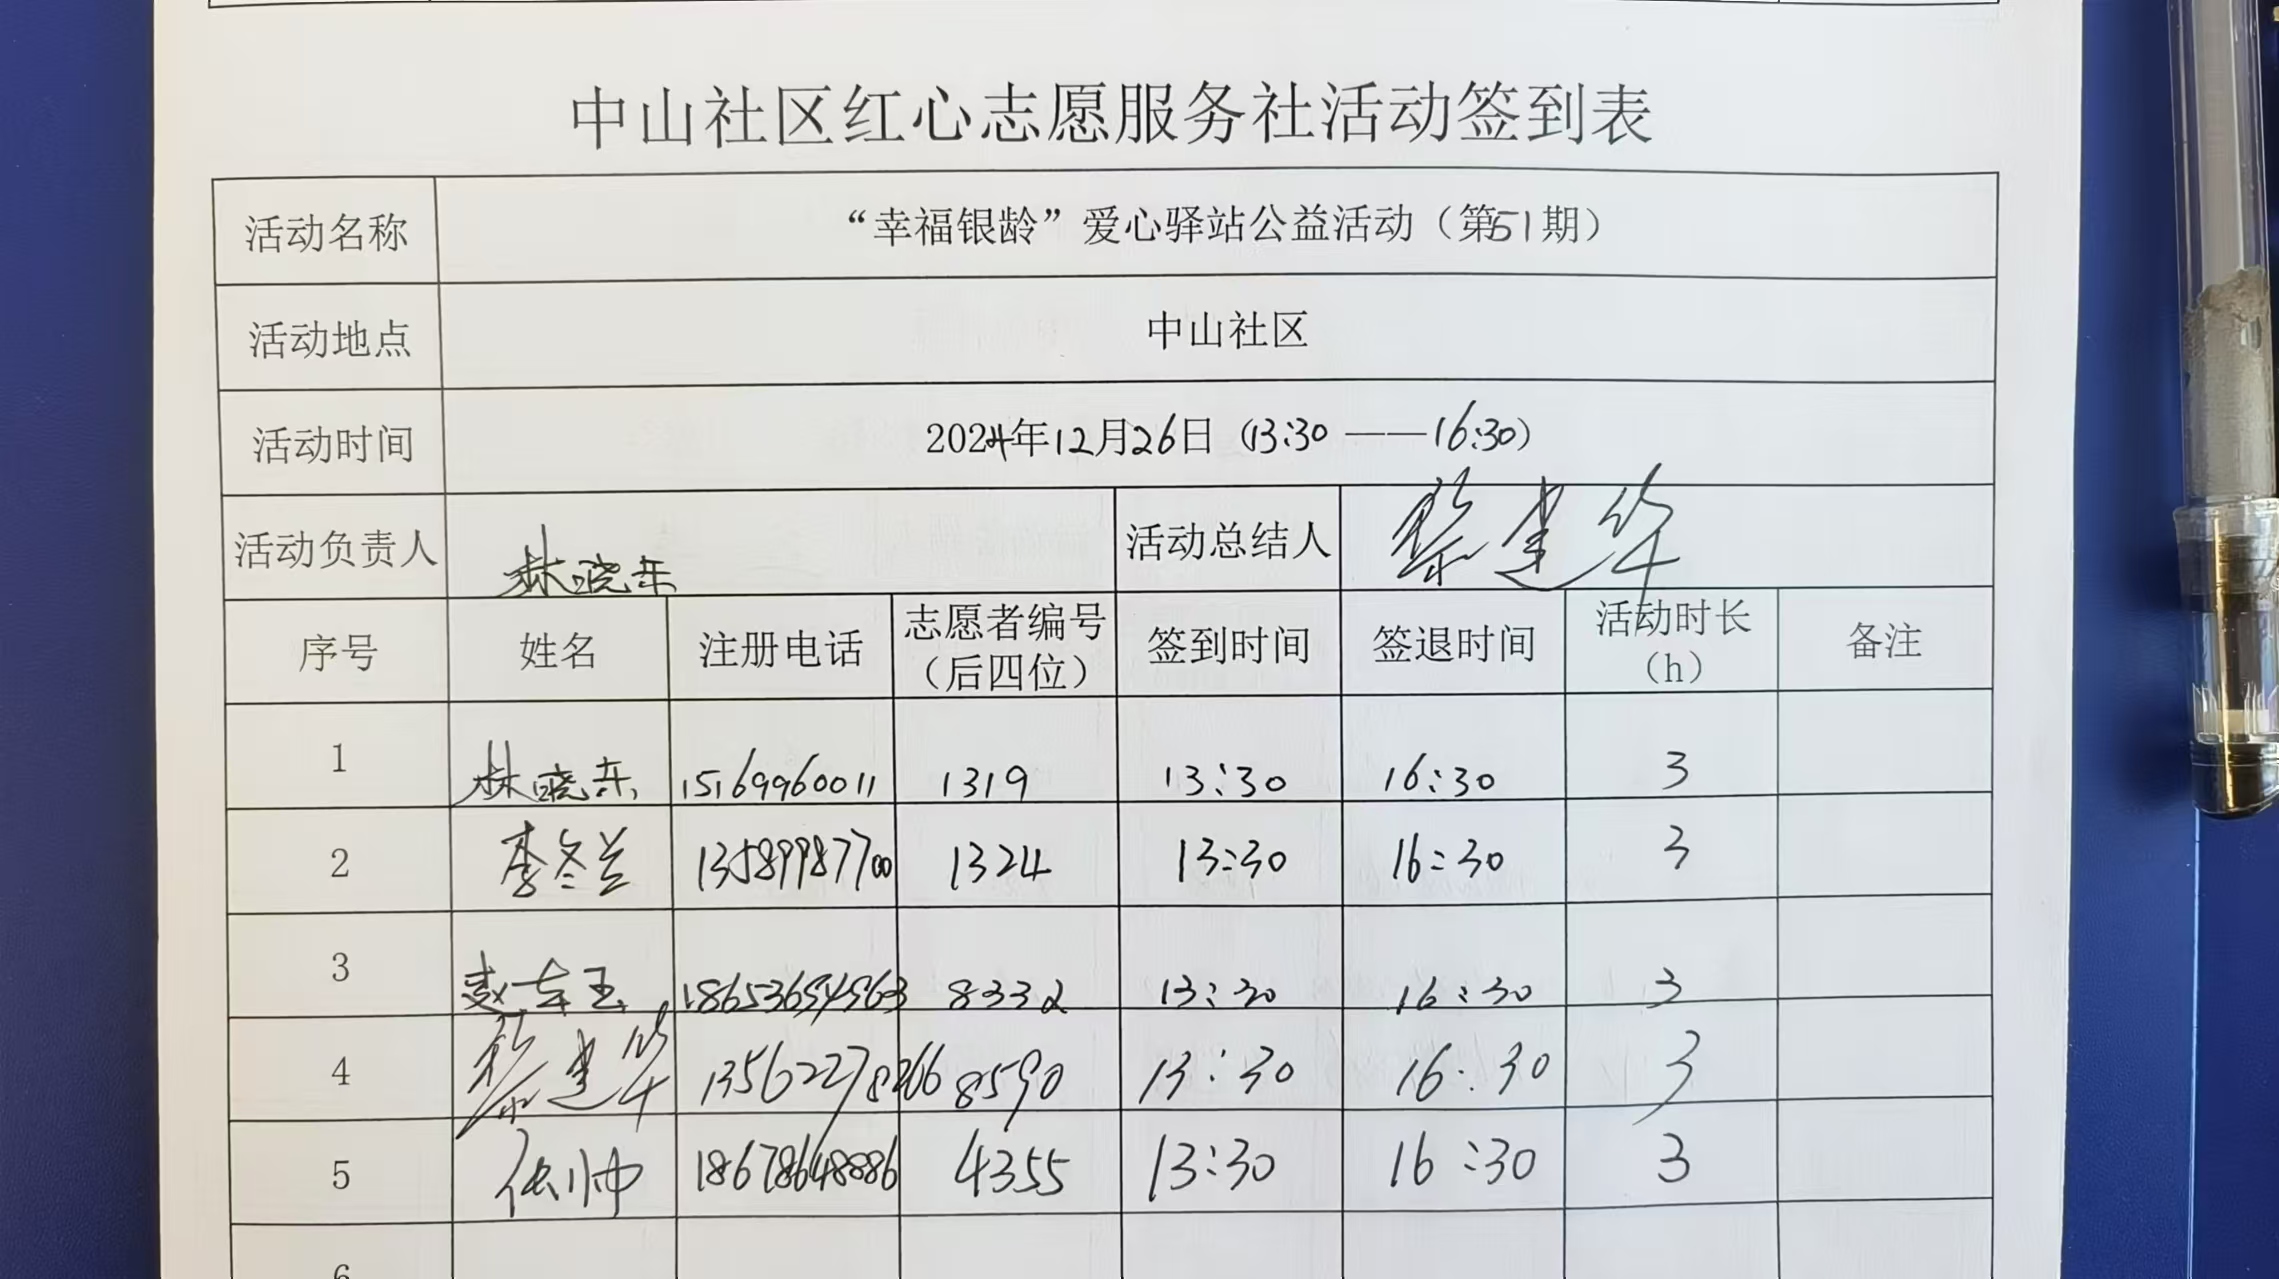 中山社区红心志愿服务社活动签到表
活动名称 “幸福银龄”爱心驿站公益活动（第51期）
活动地点 中山社区
活动时间 2024年12月26日（13:30——16:30）
活动负责人 林晓东 活动总结人 黎建华
序号 姓名 注册电话 志愿者编号（后四位） 签到时间 签退时间 活动时长（h） 备注
1 林晓东 15169960011 1319 13:30 16:30 3
2 李冬兰 13589987700 1324 13:30 16:30 3
3 赵 玉 18653654563 8332 13:30 16:30 3
4 黎建华 13562278266 8590 13:30 16:30 3
5 帅 18678648886 4355 13:30 16:30 3
6